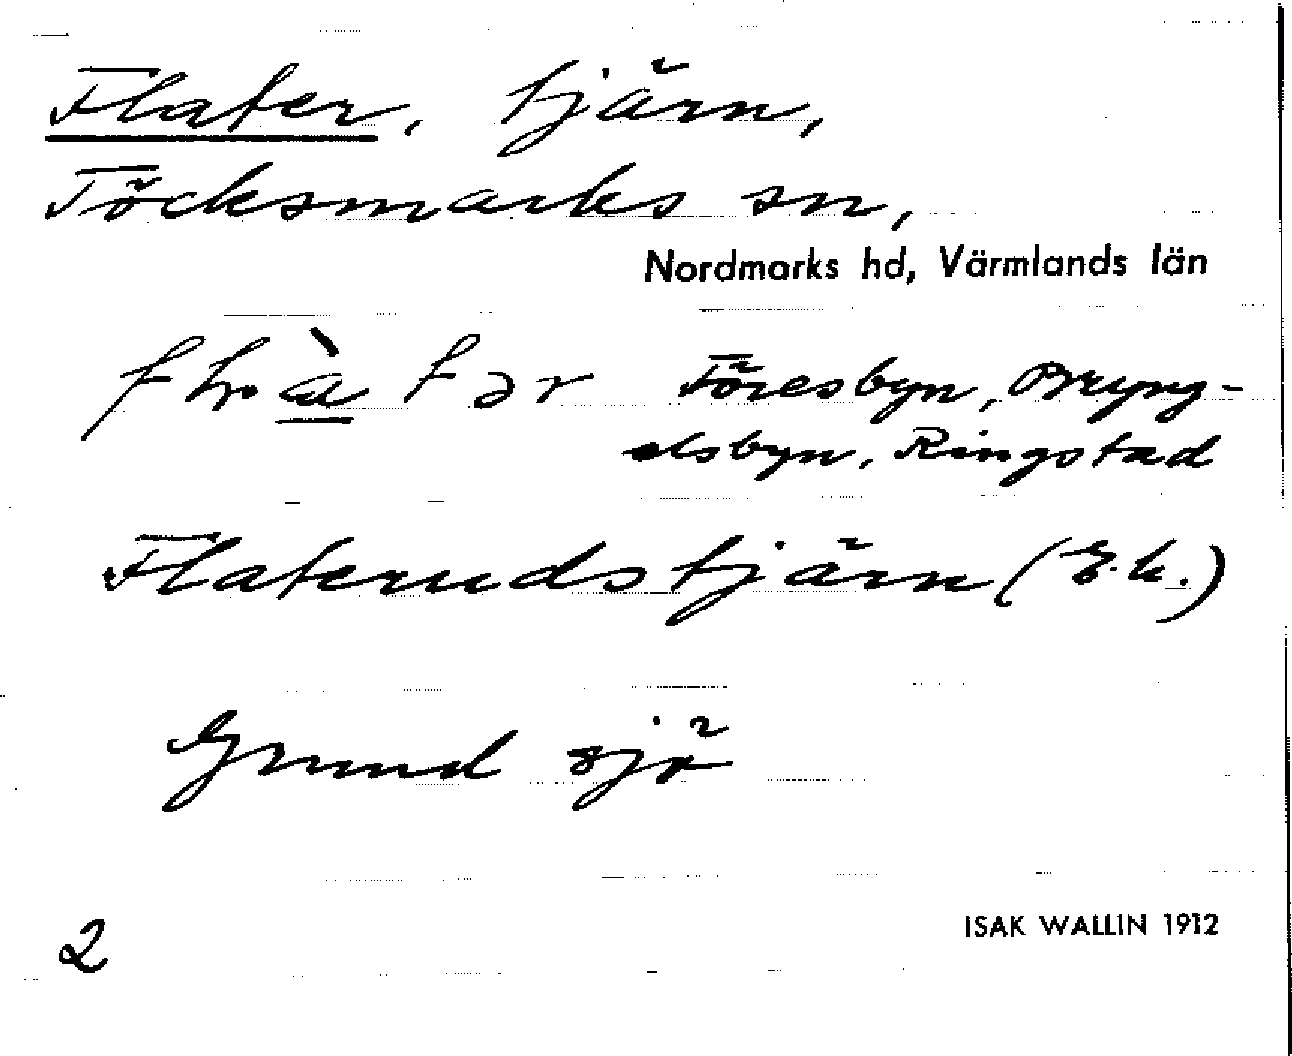 Flater, tjärn,
Töcksmarks sn,
Nordmarks hd, Värmlands län
Töresbyn, Bryng-
elsbyn, Ringstad
Flaterudstjärn (E.k.)
Grund sjö
2
ISAK WALLIN 1912